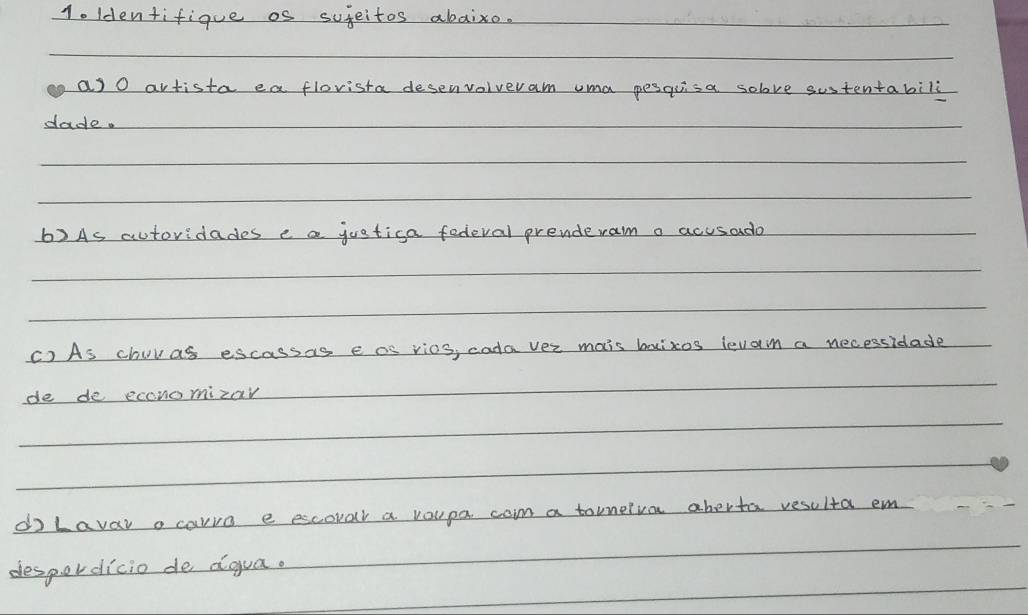 1. Identifique os sujeitos abaixo.
a) O artista e a florista desenvolveram uma pesquisa sobre sustentabili
dade.
b) As autoridades e a justiça federal prenderam o acusado
c) As chuvas escassas e os rios, cada vez mais baixos levam a necessidade
de de economizar
d) Lavar o carro e escovar a roupa com a torneira aberta resulta em
desperdício de água.